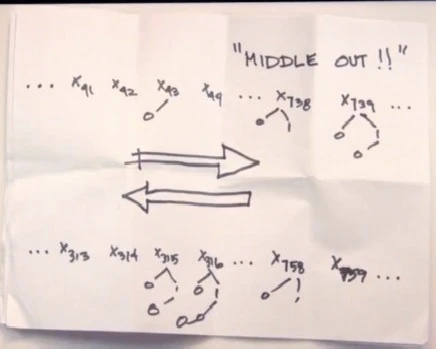 "MIDDLE OUT !!"
... X41 X42 X43 X44 ... X738 X739 ...
0 0 1 0 0
... X313 X314 X315 X316 ... X758 X759 ...